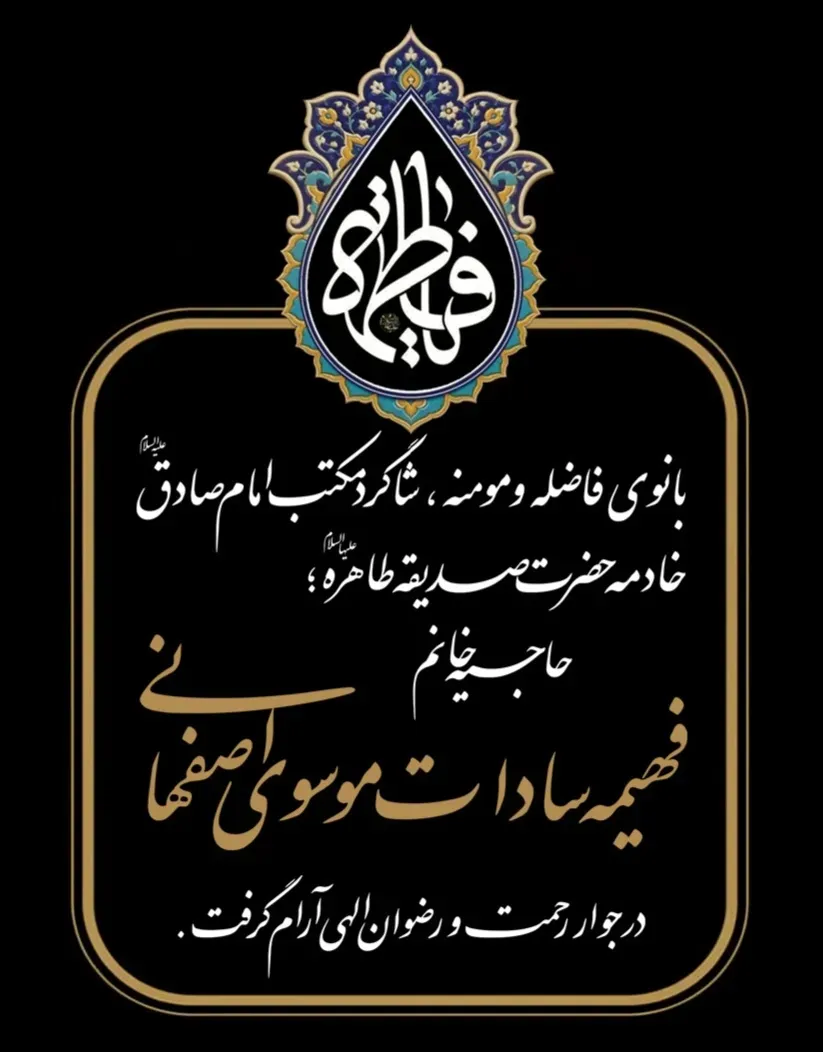 فاطمة
بانوی فاضله و مومنه ، شاگرد مکتب امام صادق علیه‌السلام
خادمه حضرت صدیقه طاهره علیهاالسلام ؛
حاجیه خانم
فهیمه سادات موسوی اصفهانی
در جوار رحمت و رضوان الهی آرام گرفت .